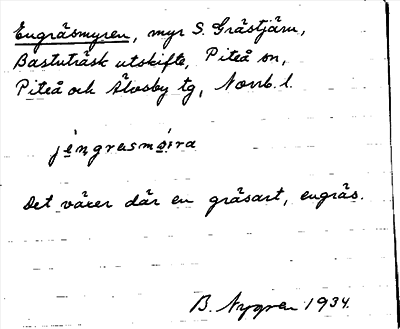 Engräsmyren, myr S. Grästjärn,
Bastuträsk utskifte, Piteå sn,
Piteå och Älvsby tg, Norrb. l.
jéngrasmöira
Det växer där en gräsart, engräs.
B. Nygren 1934.